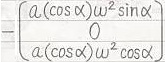 a(cosα)ω²sinα
− 0
a(cosα)ω²cosα